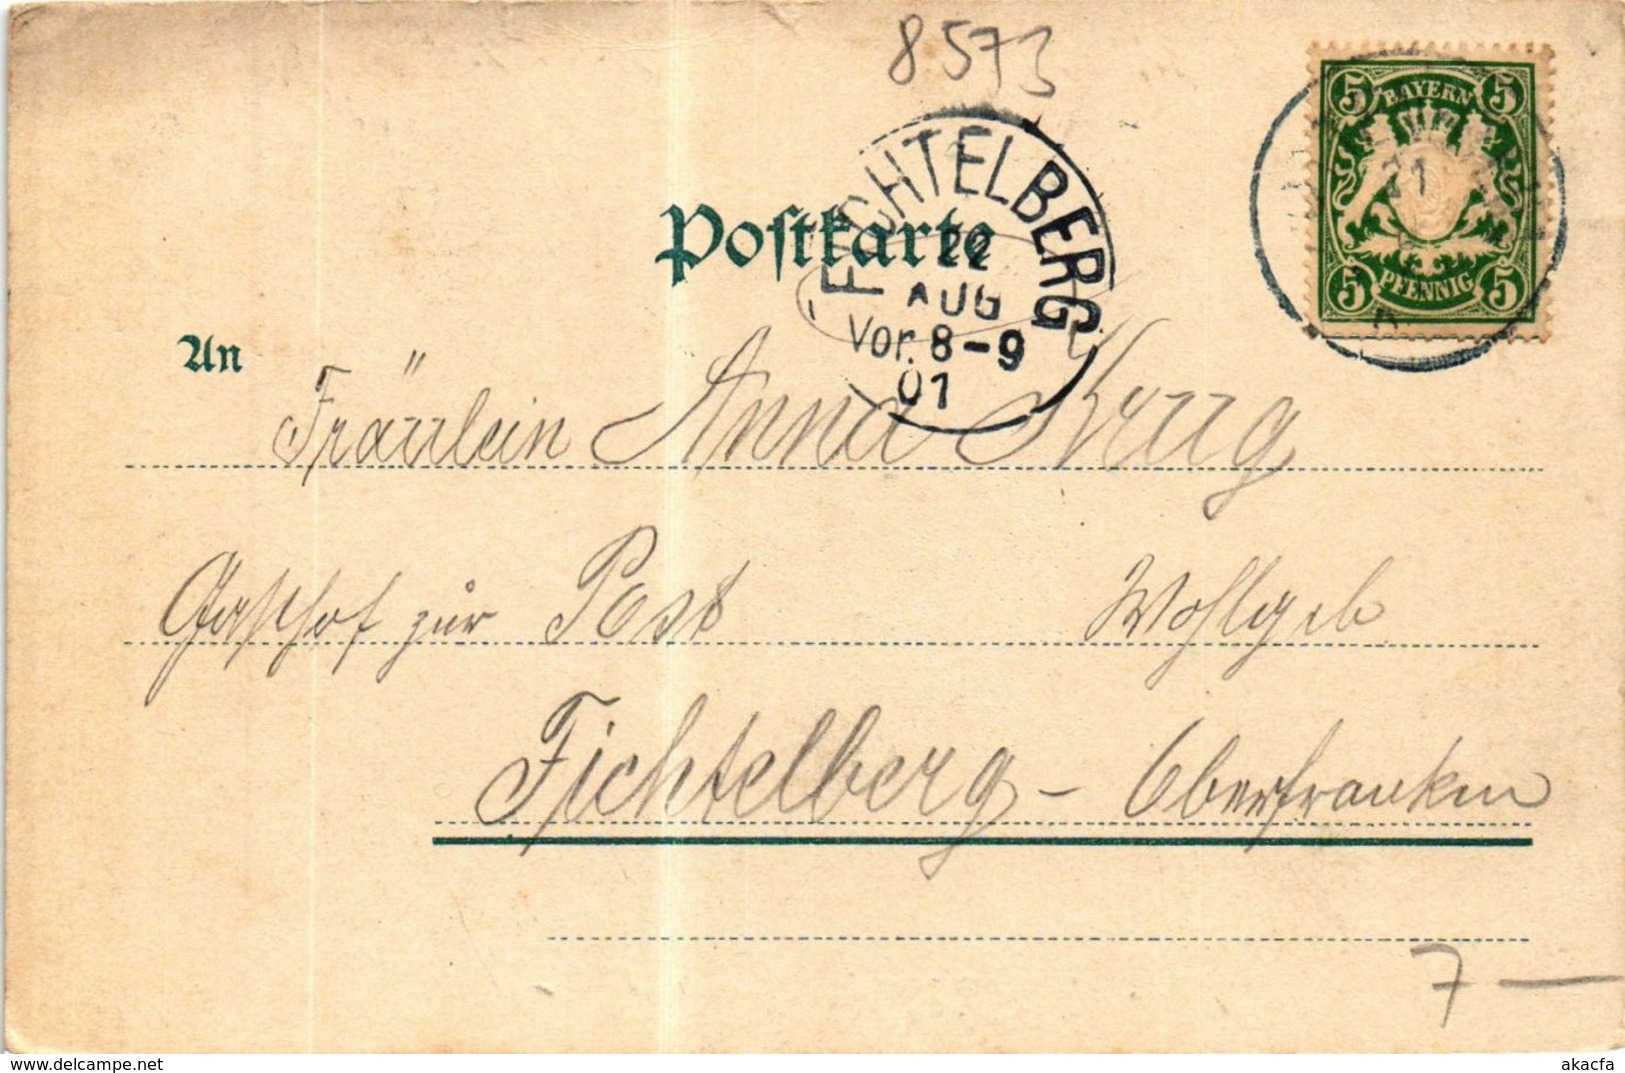 8573
BAYERN
5 5
21
5 PFENNIG 5
FICHTELBERG
22
AUG
Vor. 8-9
01
Postkarte
An
Fräulein Anna Krug
Gasthof zur Post Wohlgeb
Fichtelberg - Oberfranken
7 —
akacfa
delcampe.net